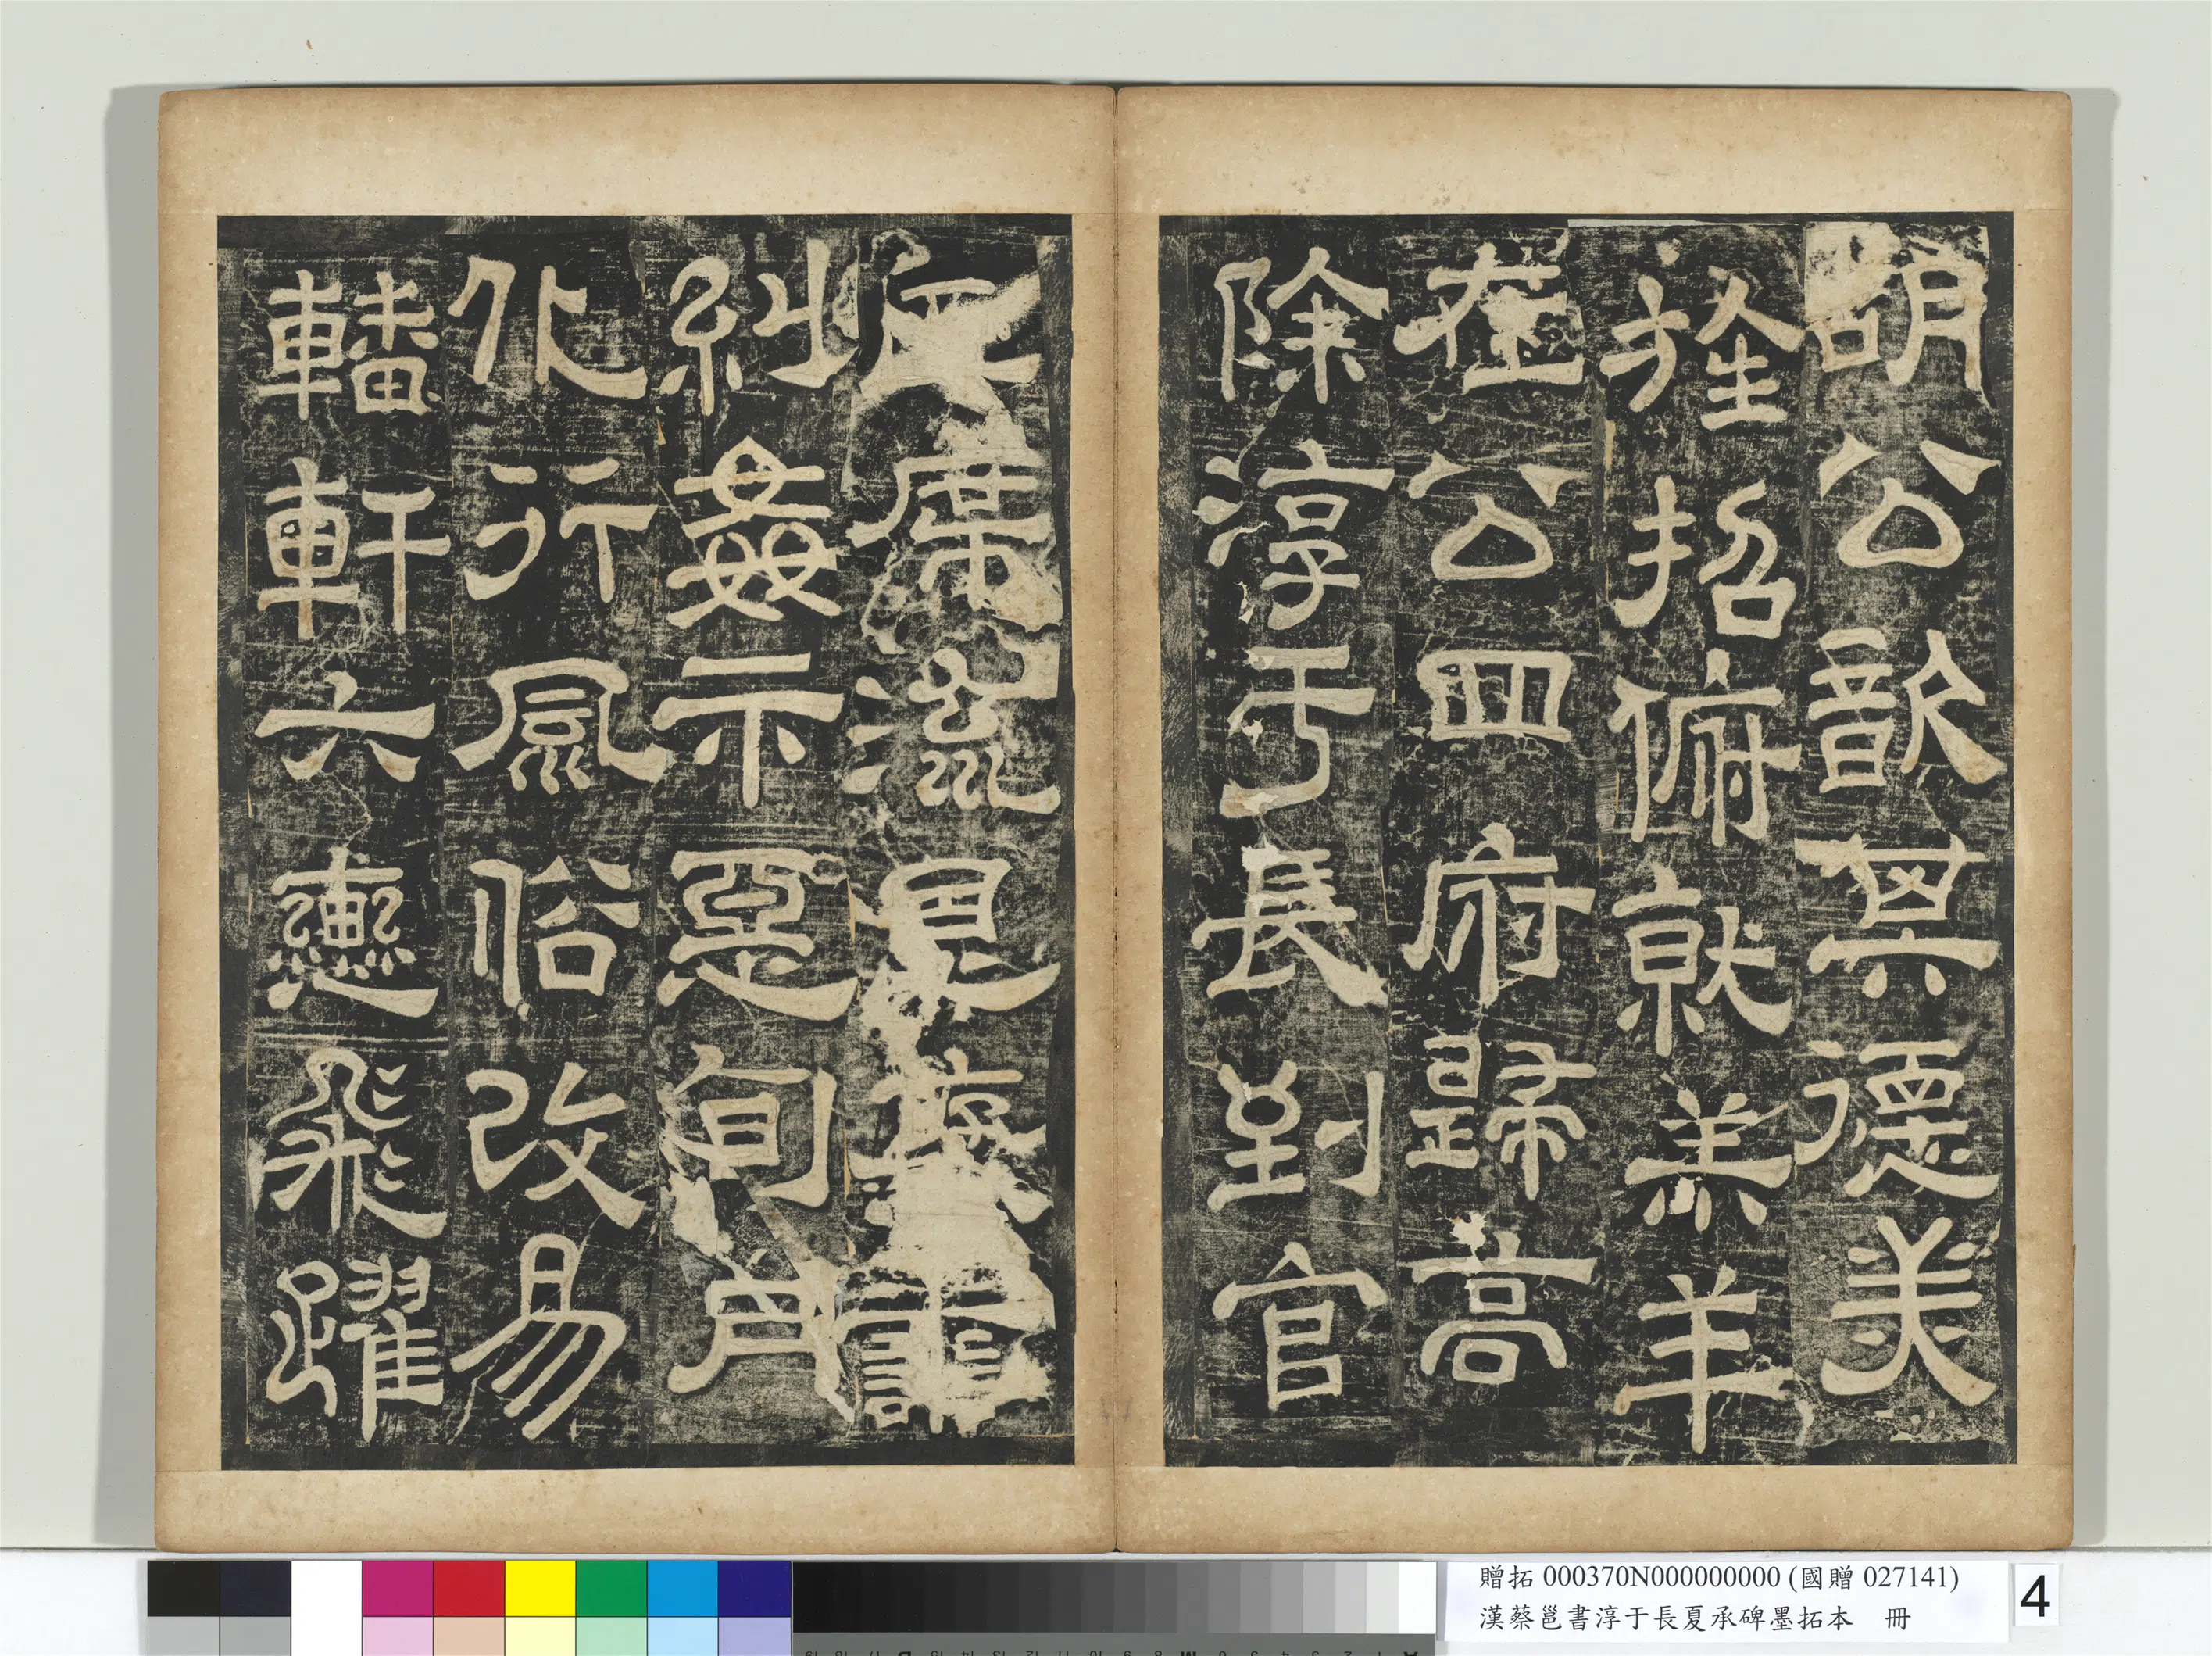 胡公歆其德美
旌招俯就羔羊
在公四府歸高
除淳于長到官
正席流恩褎譱
糾姦示惡旬月
化行風俗改易
轓軒六轡飛躍
贈拓 000370N000000000 (國贈 027141)
漢蔡邕書淳于長夏承碑墨拓本 冊
4